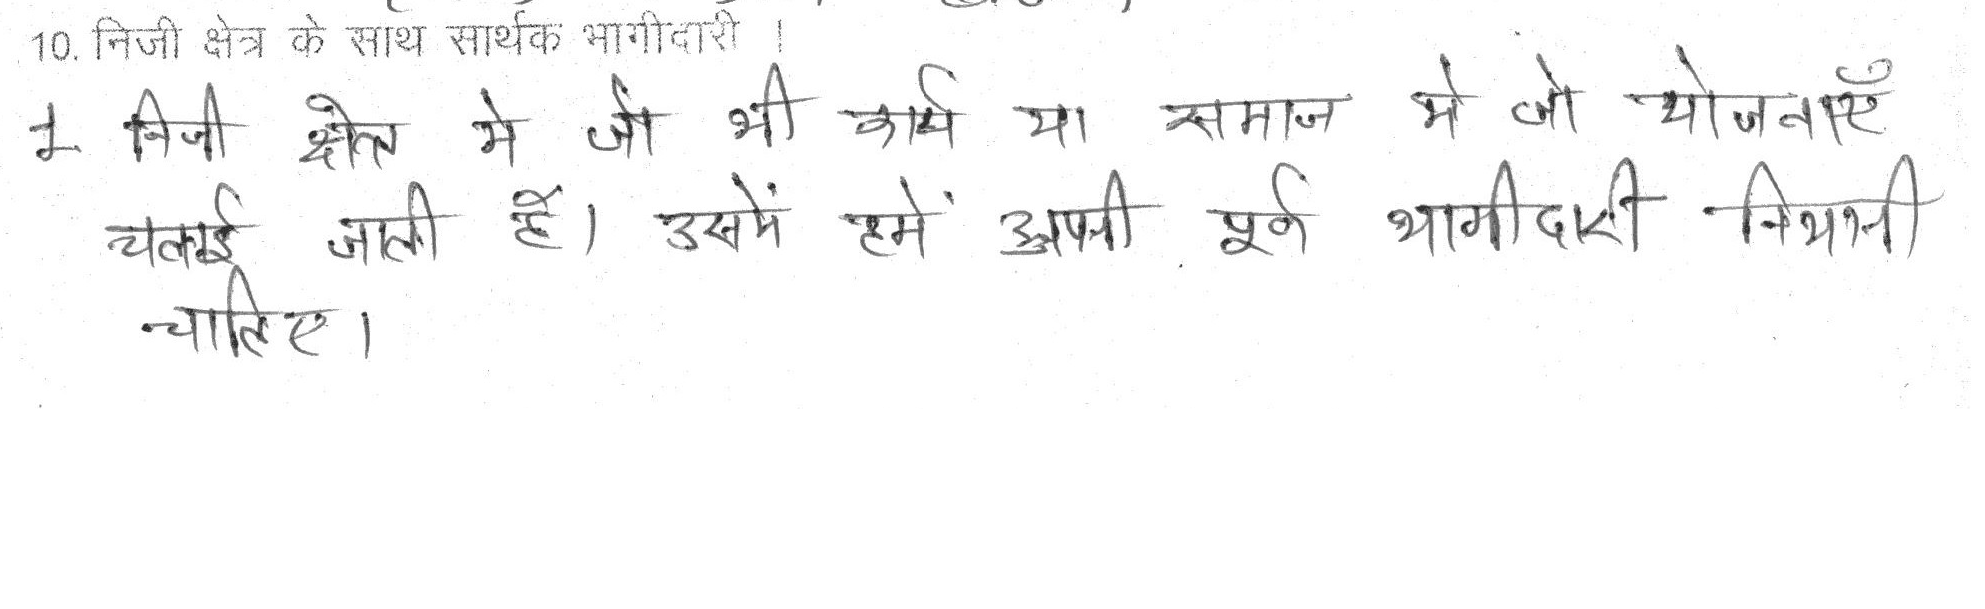 10. निजी क्षेत्र के साथ सार्थक भागीदारी ।
1 निजी क्षेत्र मे जो भी कार्य या समाज मे जो योजनाएँ
चलाई जाती हैं। उसमें हमें अपनी पूर्ण भागीदारी निभानी
चाहिए।